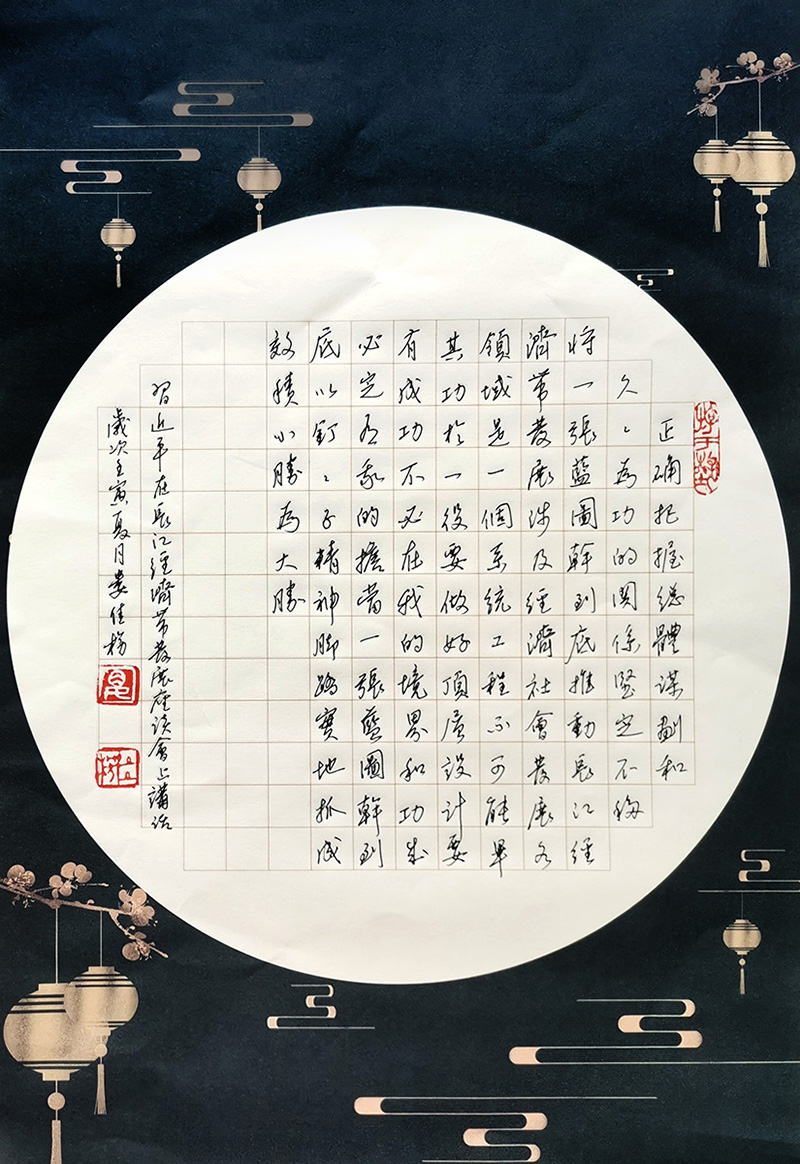 正确把握總體謀劃和
久〻為功的関係堅定不移
将一張藍圖幹到底推動長江經
濟帶發展涉及經濟社會發展各
領域是一個系統工程不可能畢
其功於一役要做好頂層設計要
有成功不必在我的境界和功成
必定有我的擔當一張藍圖幹到
底以釘〻子精神脚踏實地抓成
效積小勝為大勝
習近平在長江經濟帶發展座談會上講話
歲次壬寅夏月婁佳